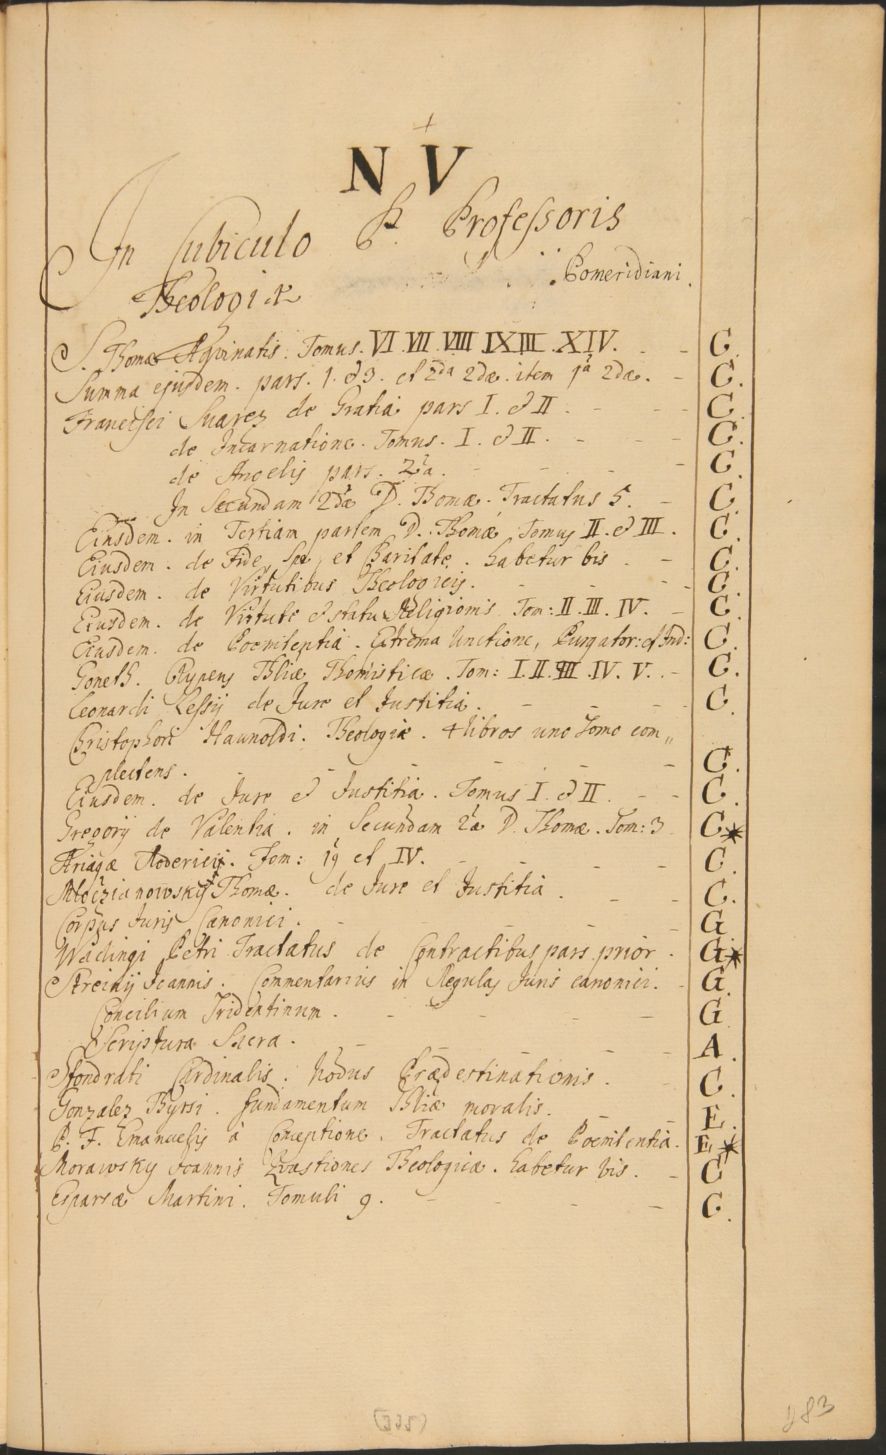 +
N V
In Cubiculo P. Professoris
Theologiæ Pomeridiani.
S. Thomæ Aquinatis. Tomus. VI. VII. VIII. IX. XIII. XIV. - - C.
Summa ejusdem. pars. 1. et 3. et 2da 2dæ. item 1a 2dæ. - C.
Francisci Suarez de Gratia pars I. et II. - - - C.
de Incarnatione. Tomus. I. et II. - - - C.
de Angelis pars. 2a. - - - - C.
In Secundam 2dæ D. Thomæ. Tractatus 5. - C.
Eiusdem. in Tertiam partem D. Thomæ Tomus II. et III. C.
Eiusdem. de Fide, Spe, et Charitate. habetur bis. - C.
Eiusdem. de Virtutibus Theologicis. - - - C.
Eiusdem. de Virtute et statu Religionis Tom: II. III. IV. - C.
Eiusdem. de Poenitentia. Extrema Unctione, Purgator: et Ind: C.
Goneth. Clypeus Thliæ Thomisticæ. Tom: I. II. III. IV. V. - C.
Leonardi Lessij de Jure et Justitia. - - - C.
Christophori Haunoldi. Theologiæ. 4 libros uno Tomo com„
plectens. - - - - - C.
Eiusdem. de Jure et Justitia. Tomus I. et II. - - C.
Gregorij de Valentia. in Secundam 2æ D. Thomæ. Tom: 3 C.*
Ariagæ Roderici. Tom: 1us et IV. - - - - C.
Młodzianowskij Thomæ. de Jure et Justitia. - - C.
Corpus Juris Canonici. - - - - G
Wadingi Petri Tractatus de Contractibus pars prior. G*
Streinij Joannis. Commentarius in Regulas Juris canonici. G.
Concilium Tridentinum. - - - - G
Scriptura Sacra. - - - - A.
Sfondrati Cardinalis. Nodus Prædestinationis. - C.
Gonzalez Thyrsi. fundamentum Thliæ moralis. - E.
P. F. Emanuelis à Conceptione. Tractatus de Poenitentia. E*
Morawsky Joannis Quæstiones Theologicæ. habetur bis. - C
Esparsæ Martini. Tomuli 9. - - - - C.
183